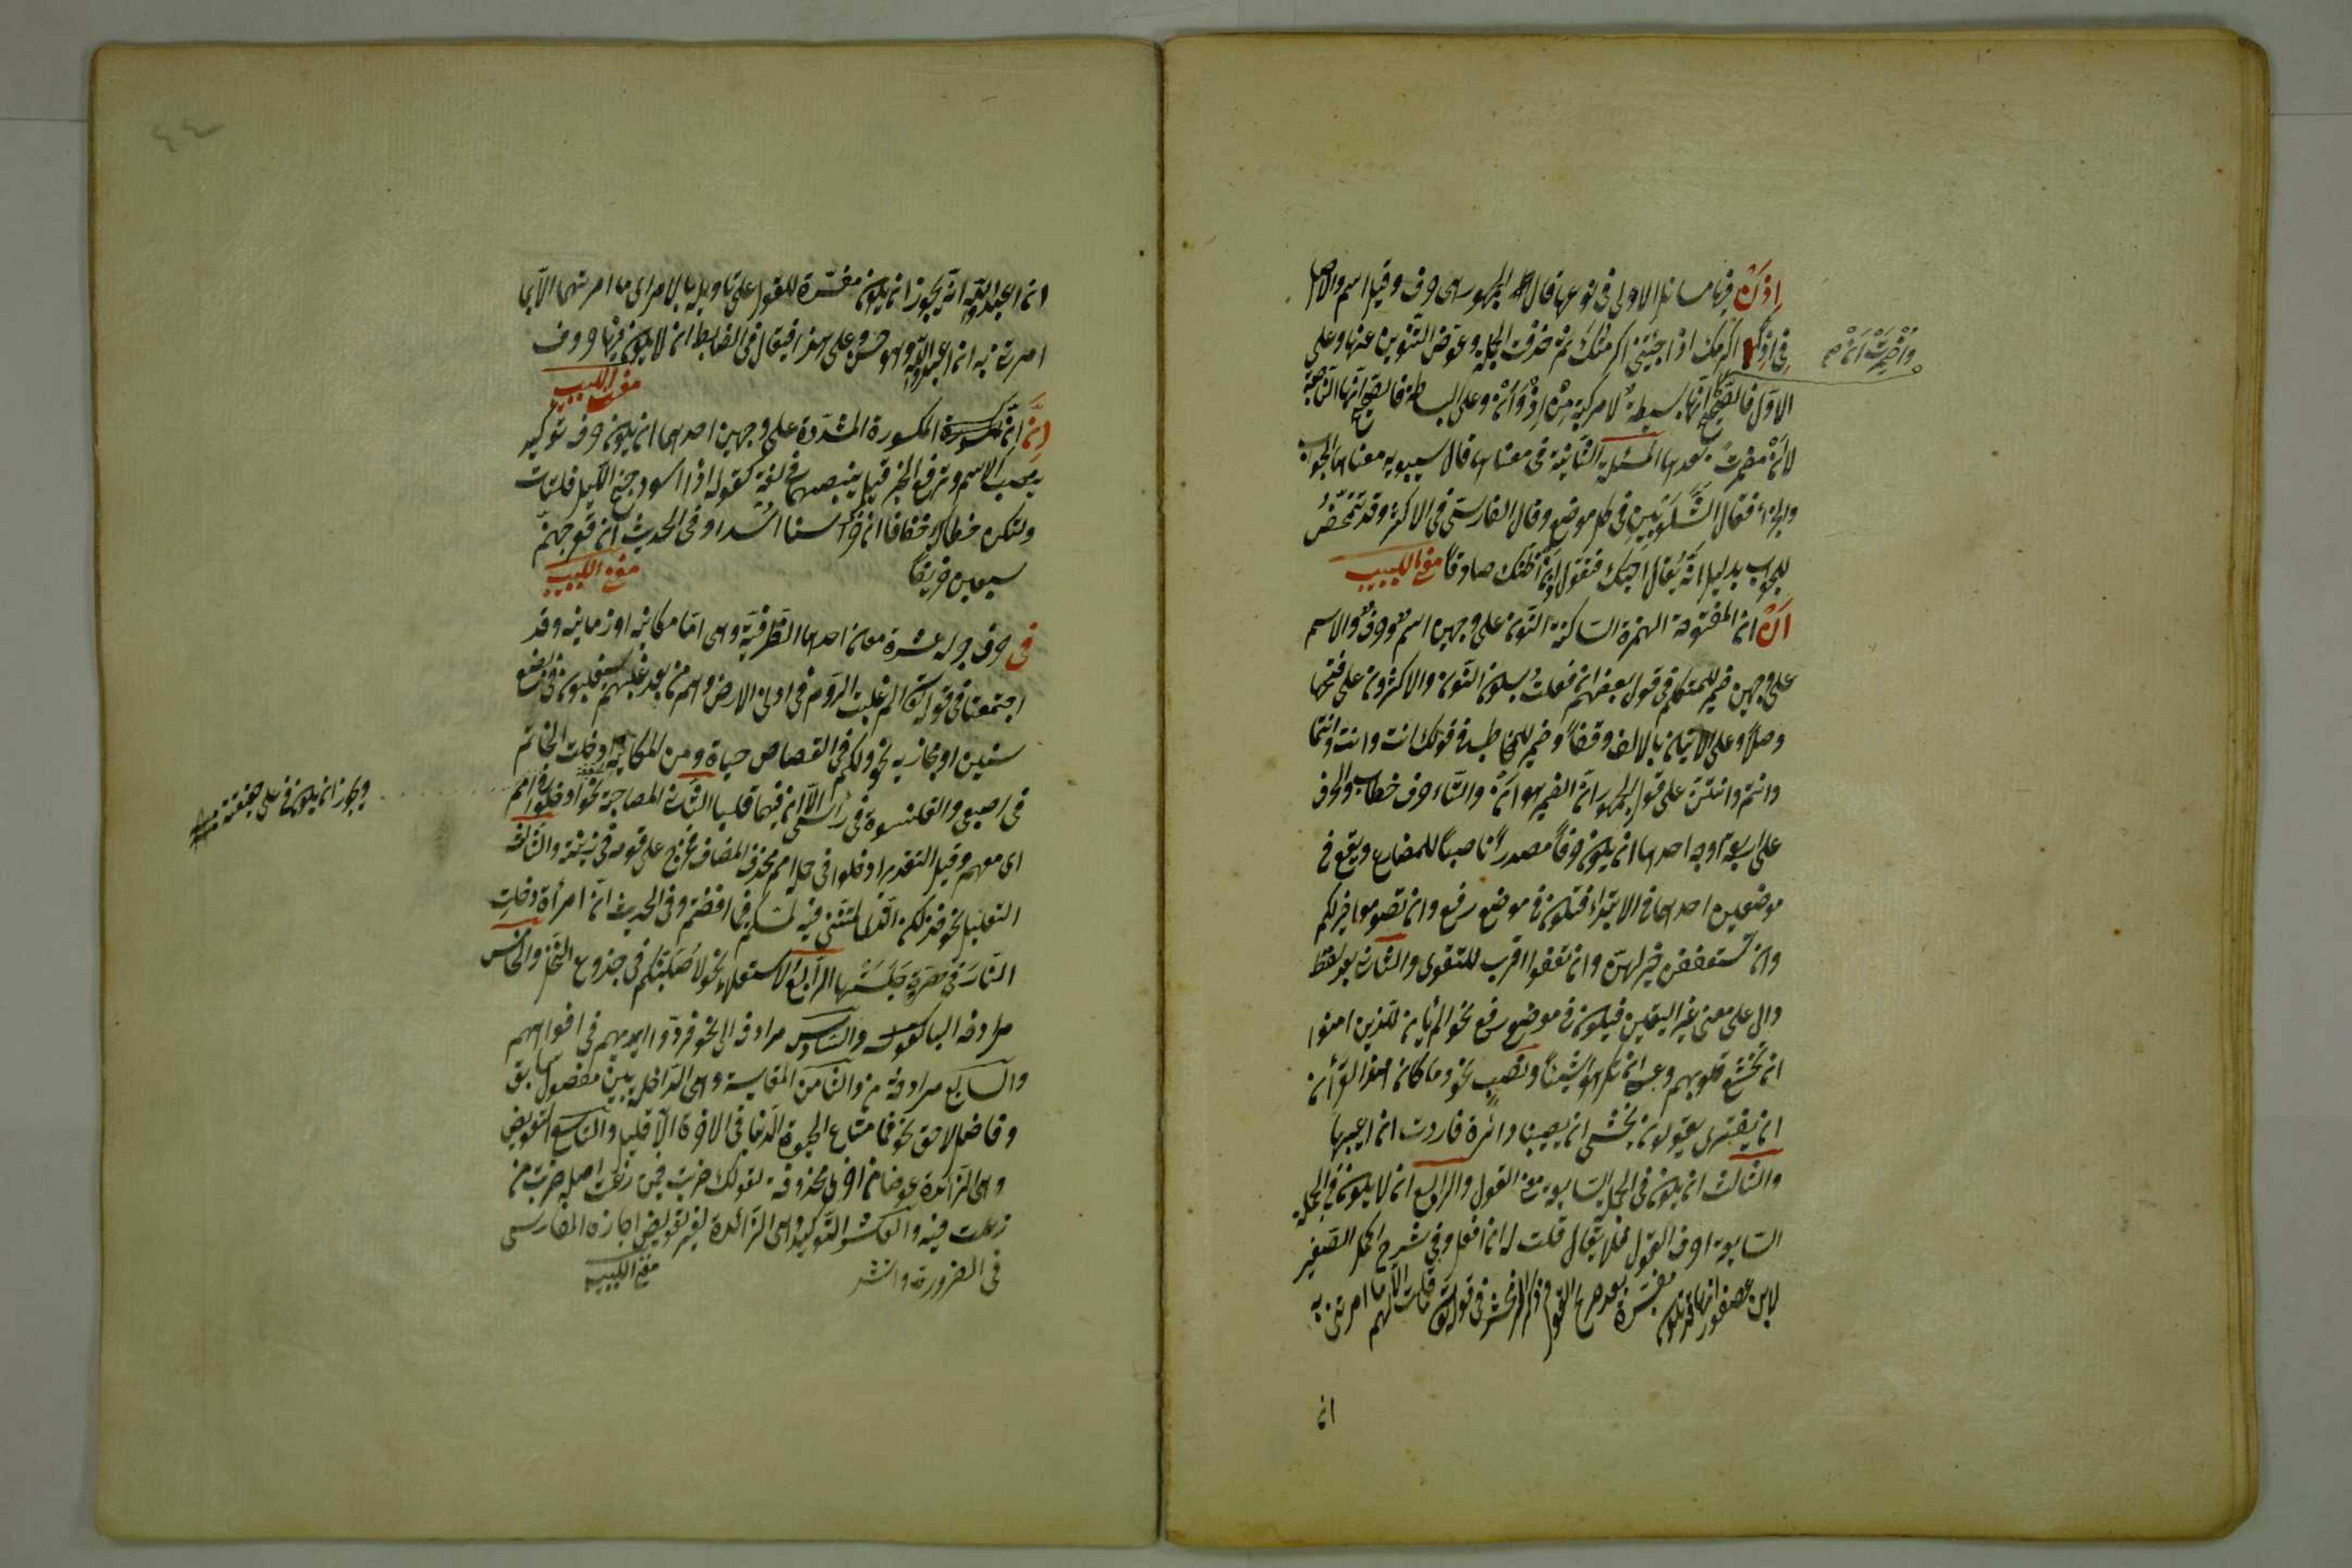 اذن فيها مسائل الاولى في نوعها قال الجمهور هى حرف وقيل اسم والاصل
في اذن اكرمك اذا جئتنى اكرمك ثم حذفت الجملة وعوض التنوين عنها وعلى
واضمرت ان
الاول فالصحيح انها بسيطة لا مركبة من اذ وان وعلى البساطة فالصحيح انها الناصبة
لا ان مضمرة بعدها المسئلة الثانية في معناها قال سيبويه معناها الجواب
والجزاء فقال الشلوبين في كل موضع وقال الفارسى في الاكثر وقد تتمحض
للجواب بدليل انه يقال احبك فتقول اذن اظنك صادقا مغنى اللبيب
ان ان المفتوحة الهمزة الساكنة النون على وجهين اسم وحرف والاسم
على وجهين ضمير للمتكلم في قول بعضهم ان فعلت بسكون النون والاكثرون على فتحها
وصلا وعلى الاتيان بالالف وقفا وضمير للمخاطب في قولك انت وانت وانتما
وانتم وانتن على قول الجمهور ان الضمير هو ان والتاء حرف خطاب والحرف
على اربعة اوجه احدها ان يكون حرفا مصدريا ناصبا للمضارع ويقع في
موضعين احدهما في الابتداء فتكون في موضع رفع وان تصوموا خير لكم
وان يستعففن خير لهن وان تعفوا اقرب للتقوى والثانى بعد لفظ
دال على معنى غير اليقين فيكون في موضع رفع نحو الم يأن للذين امنوا
ان تخشع قلوبهم وعسى ان تكرهوا شيئا ونصب نحو وما كان هذا القرأن
ان يفترى يقولون نخشى ان تصيبنا دائرة فاردت ان اعيبها
والثالث ان يكون في الجملة السابقة معنى القول والرابع ان لا يكون في الجملة
السابقة احرف القول فلا يقال قلت له ان افعل وفي شرح الجمل الصغير
لابن عصفور انها قد تكون مفسرة بعد صريح القول وذكر الزمخشرى في قوله تعالى ما قلت لهم الا ما امرتنى به
ان
ان اعبدوا الله انه يجوز ان يكون مفسرة للقول على تاويله بالامر اى ما امرتهم الا بما
امرتنى به ان اعبدوا الله وهو حسن وعلى هذا فيقال في الضابط ان لا يكون فيها حروف
مغنى اللبيب
ان ان المكسورة المشددة على وجهين احدهما ان يكون حرف توكيد
ينصب الاسم وترفع الخبر قيل ينصبهما في لغة كقوله اذا اسود جنح الليل فلتأت
ولتكن خطاك خفافا ان حراسنا اسدا وفي الحديث ان قعر جهنم
سبعين خريفا
مغنى اللبيب
في حرف جر له عشرة معان احدها الظرفية وهى اما مكانية او زمانية وقد
اجتمعتا في قوله تعالى الم غلبت الروم في ادنى الارض وهم من بعد غلبهم سيغلبون في بضع
سنين او مجازية نحو ولكم في القصاص حياة ومن المكانية ادخلت الخاتم
في اصبعى والقلنسوة في رأسى الا ان فيها قلبا الثانى المصاحبة نحو ادخلوا في امم
اى معهم وقيل التقدير ادخلوا في جملة امم فحذف المضاف فخرج على قومه في زينته والثالث
ويجوز ان يكون في على حقيقته
التعليل نحو فذلكن الذى لمتننى فيه لمسكم في ما افضتم وفي الحديث ان امرأة دخلت
النار في هرة حبستها الرابع الاستعلاء نحو لاصلبنكم في جذوع النخل والخامس
مرادفة الباء والسادس مرادفة الى نحو فردوا ايديهم في افواههم
والسابع مرادفة من والثامن المقايسة وهى الداخلة بين مفضول سابق
وفاضل لاحق نحو فما متاع الحيوة الدنيا في الاخرة الا قليل والتاسع التعويض
وهى الزائدة عوضا من اخرى محذوفة كقولك ضربت فيمن رغبت اصله ضربت من
رغبت فيه والعاشر التوكيد وهى الزائدة لغير تعويض اجازه الفارسى
في الضرورة وانشد
مغنى اللبيب